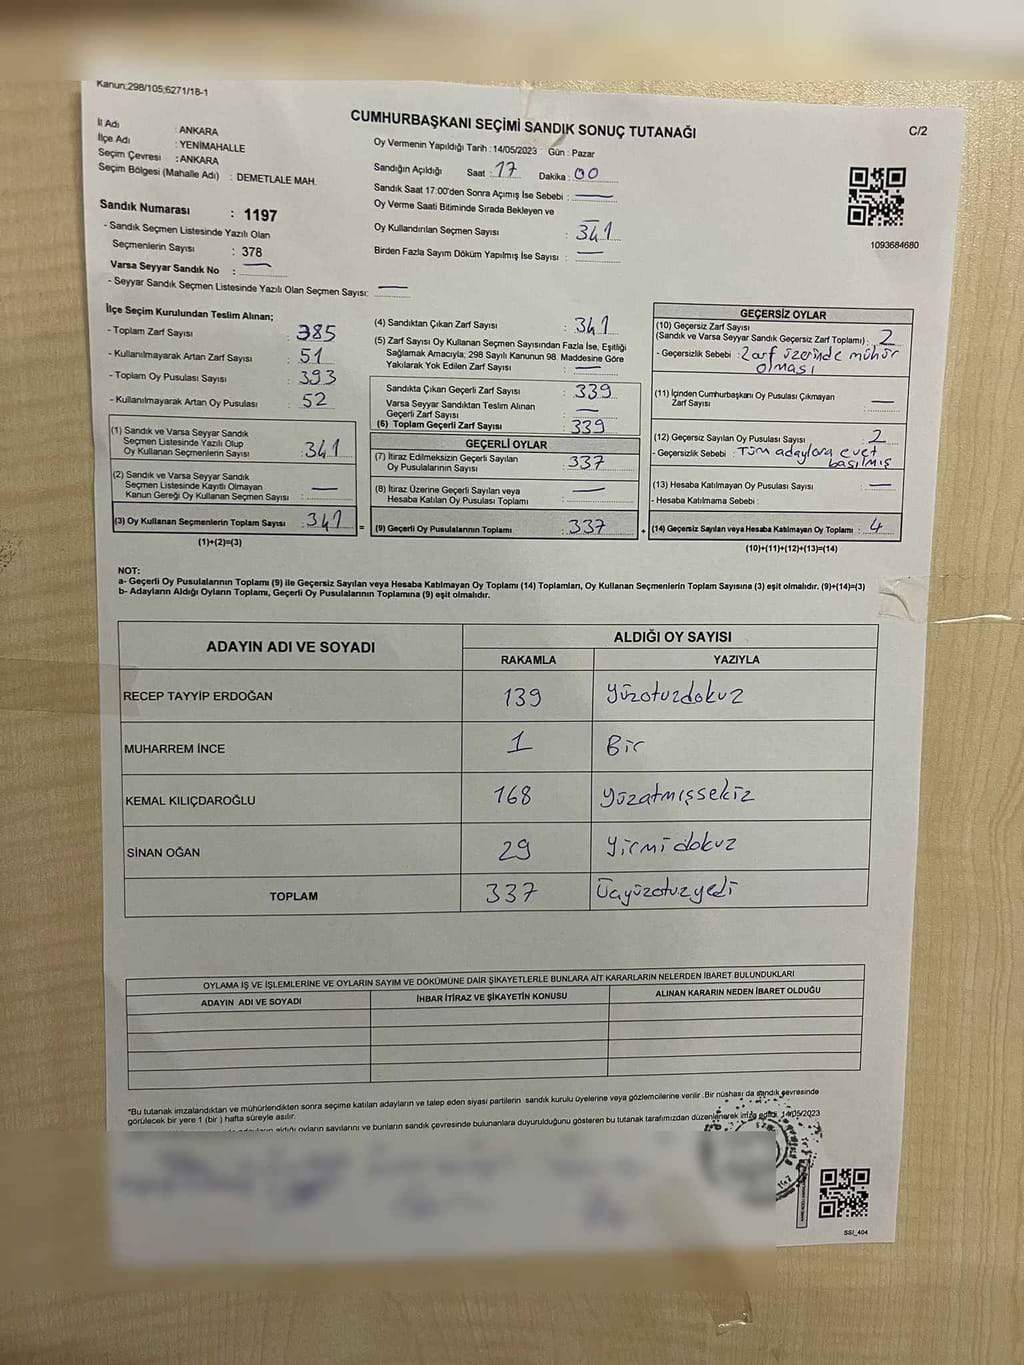 Kanun;298/105;6271/18-1
CUMHURBAŞKANI SEÇİMİ SANDIK SONUÇ TUTANAĞI
C/2
İl Adı : ANKARA
İlçe Adı : YENİMAHALLE
Seçim Çevresi : ANKARA
Seçim Bölgesi (Mahalle Adı) : DEMETLALE MAH.
Sandık Numarası : 1197
- Sandık Seçmen Listesinde Yazılı Olan
Seçmenlerin Sayısı : 378
Varsa Seyyar Sandık No : —
- Seyyar Sandık Seçmen Listesinde Yazılı Olan Seçmen Sayısı: —
Oy Vermenin Yapıldığı Tarih : 14/05/2023 Gün : Pazar
Sandığın Açıldığı Saat : 17 Dakika : 00
Sandık Saat 17:00'den Sonra Açımış İse Sebebi : —
Oy Verme Saati Bitiminde Sırada Bekleyen ve
Oy Kullandırılan Seçmen Sayısı : 341
Birden Fazla Sayım Döküm Yapılmış İse Sayısı : —
1093684680
İlçe Seçim Kurulundan Teslim Alınan;
- Toplam Zarf Sayısı : 385
- Kullanılmayarak Artan Zarf Sayısı : 51
- Toplam Oy Pusulası Sayısı : 393
- Kullanılmayarak Artan Oy Pusulası : 52
(1) Sandık ve Varsa Seyyar Sandık
Seçmen Listesinde Yazılı Olup
Oy Kullanan Seçmenlerin Sayısı : 341
(2) Sandık ve Varsa Seyyar Sandık
Seçmen Listesinde Kayıtlı Olmayan
Kanun Gereği Oy Kullanan Seçmen Sayısı : —
(3) Oy Kullanan Seçmenlerin Toplam Sayısı : 341
(1)+(2)=(3)
=
(4) Sandıktan Çıkan Zarf Sayısı : 341
(5) Zarf Sayısı Oy Kullanan Seçmen Sayısından Fazla İse, Eşitliği
Sağlamak Amacıyla; 298 Sayılı Kanunun 98. Maddesine Göre
Yakılarak Yok Edilen Zarf Sayısı : —
Sandıkta Çıkan Geçerli Zarf Sayısı : 339
Varsa Seyyar Sandıktan Teslim Alınan
Geçerli Zarf Sayısı : —
(6) Toplam Geçerli Zarf Sayısı : 339
GEÇERLİ OYLAR
(7) İtiraz Edilmeksizin Geçerli Sayılan
Oy Pusulalarının Sayısı : 337
(8) İtiraz Üzerine Geçerli Sayılan veya
Hesaba Katılan Oy Pusulası Toplamı : —
(9) Geçerli Oy Pusulalarının Toplamı : 337
+
GEÇERSİZ OYLAR
(10) Geçersiz Zarf Sayısı
(Sandık ve Varsa Seyyar Sandık Geçersiz Zarf Toplamı) : 2
- Geçersizlik Sebebi : Zarf üzerinde mühür
olması
(11) İçinden Cumhurbaşkanı Oy Pusulası Çıkmayan
Zarf Sayısı : —
(12) Geçersiz Sayılan Oy Pusulası Sayısı : 2
- Geçersizlik Sebebi : Tüm adaylara evet
basılmış
(13) Hesaba Katılmayan Oy Pusulası Sayısı : —
- Hesaba Katılmama Sebebi :
(14) Geçersiz Sayılan veya Hesaba Katılmayan Oy Toplamı : 4
(10)+(11)+(12)+(13)=(14)
NOT:
a- Geçerli Oy Pusulalarının Toplamı (9) ile Geçersiz Sayılan veya Hesaba Katılmayan Oy Toplamı (14) Toplamları, Oy Kullanan Seçmenlerin Toplam Sayısına (3) eşit olmalıdır. (9)+(14)=(3)
b- Adayların Aldığı Oyların Toplamı, Geçerli Oy Pusulalarının Toplamına (9) eşit olmalıdır.
ADAYIN ADI VE SOYADI ALDIĞI OY SAYISI
RAKAMLA YAZIYLA
RECEP TAYYİP ERDOĞAN 139 Yüzotuzdokuz
MUHARREM İNCE 1 Bir
KEMAL KILIÇDAROĞLU 168 Yüzatmışsekiz
SİNAN OĞAN 29 Yirmidokuz
TOPLAM 337 Üçyüzotuzyedi
OYLAMA İŞ VE İŞLEMLERİNE VE OYLARIN SAYIM VE DÖKÜMÜNE DAİR ŞİKAYETLERLE BUNLARA AİT KARARLARIN NELERDEN İBARET BULUNDUKLARI
ADAYIN ADI VE SOYADI İHBAR İTİRAZ VE ŞİKAYETİN KONUSU ALINAN KARARIN NEDEN İBARET OLDUĞU
*Bu tutanak imzalandıktan ve mühürlendikten sonra seçime katılan adayların ve talep eden siyasi partilerin sandık kurulu üyelerine veya gözlemcilerine verilir. Bir nüshası da sandık çevresinde
görülecek bir yere 1 (bir ) hafta süreyle asılır.
aldığı oyların sayılarını ve bunların sandık çevresinde bulunanlara duyurulduğunu gösteren bu tutanak tarafımızdan düzenlenerek imza edildi. 14/05/2023
SSİ_404